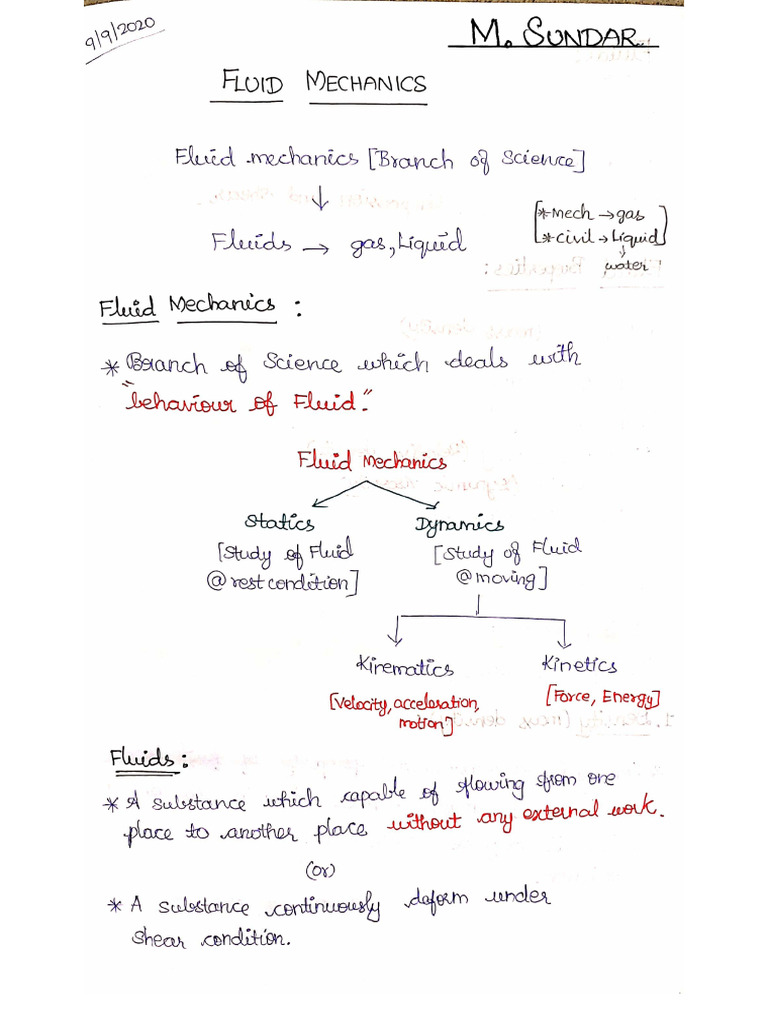 9/9/2020
M. SUNDAR
FLUID MECHANICS
Fluid mechanics [Branch of Science]
↓
Fluids → gas, Liquid
[* mech → gas
* civil → Liquid]
↓
water
Fluid Mechanics :
* Branch of Science which deals with
"behaviour of Fluid."
Fluid Mechanics
Statics Dynamics
[Study of Fluid [Study of Fluid
@ rest condition] @ moving]
Kirematics Kinetics
[Velocity, acceleration, [Force, Energy]
motion]
Fluids :
* A substance which capable of flowing from one
place to another place without any external work.
(or)
* A substance continuously deform under
shear condition.